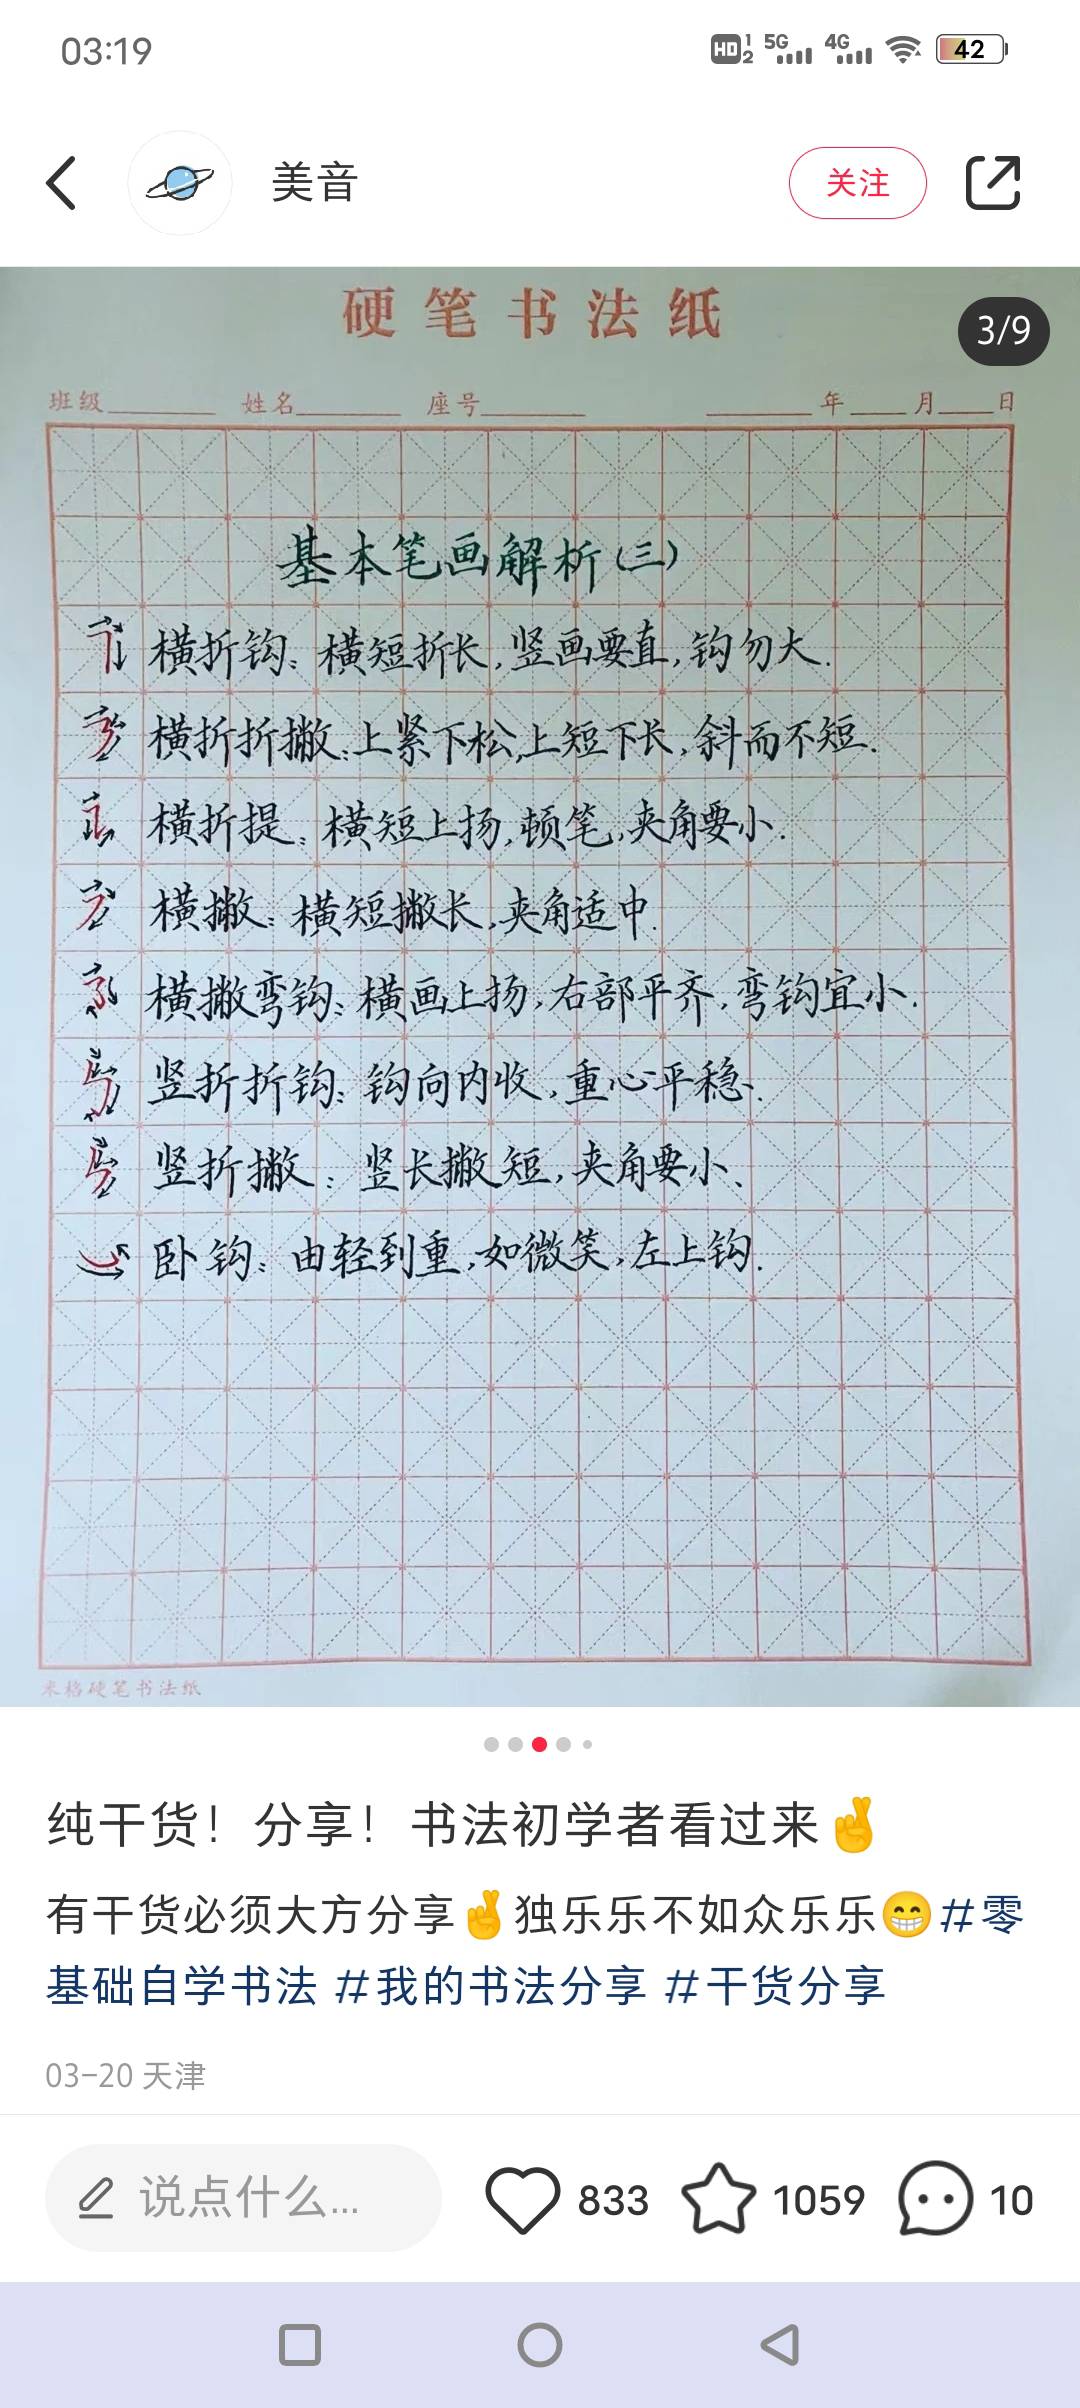 03:19
HD 1 2 5G 4G 42
美音
关注
硬笔书法纸
3/9
班级 姓名 座号 年 月 日
基本笔画解析(三)
横折钩:横短折长,竖画要直,钩勿大.
横折折撇:上紧下松,上短下长,斜而不短.
横折提:横短上扬,顿笔,夹角要小.
横撇:横短撇长,夹角适中.
横撇弯钩:横画上扬,右部平齐,弯钩宜小.
竖折折钩:钩向内收,重心平稳.
竖折撇:竖长撇短,夹角要小、
卧钩:由轻到重,如微笑,左上钩.
米格硬笔书法纸
纯干货!分享!书法初学者看过来🤞
有干货必须大方分享🤞独乐乐不如众乐乐😁#零
基础自学书法 #我的书法分享 #干货分享
03-20 天津
说点什么... 833 1059 10